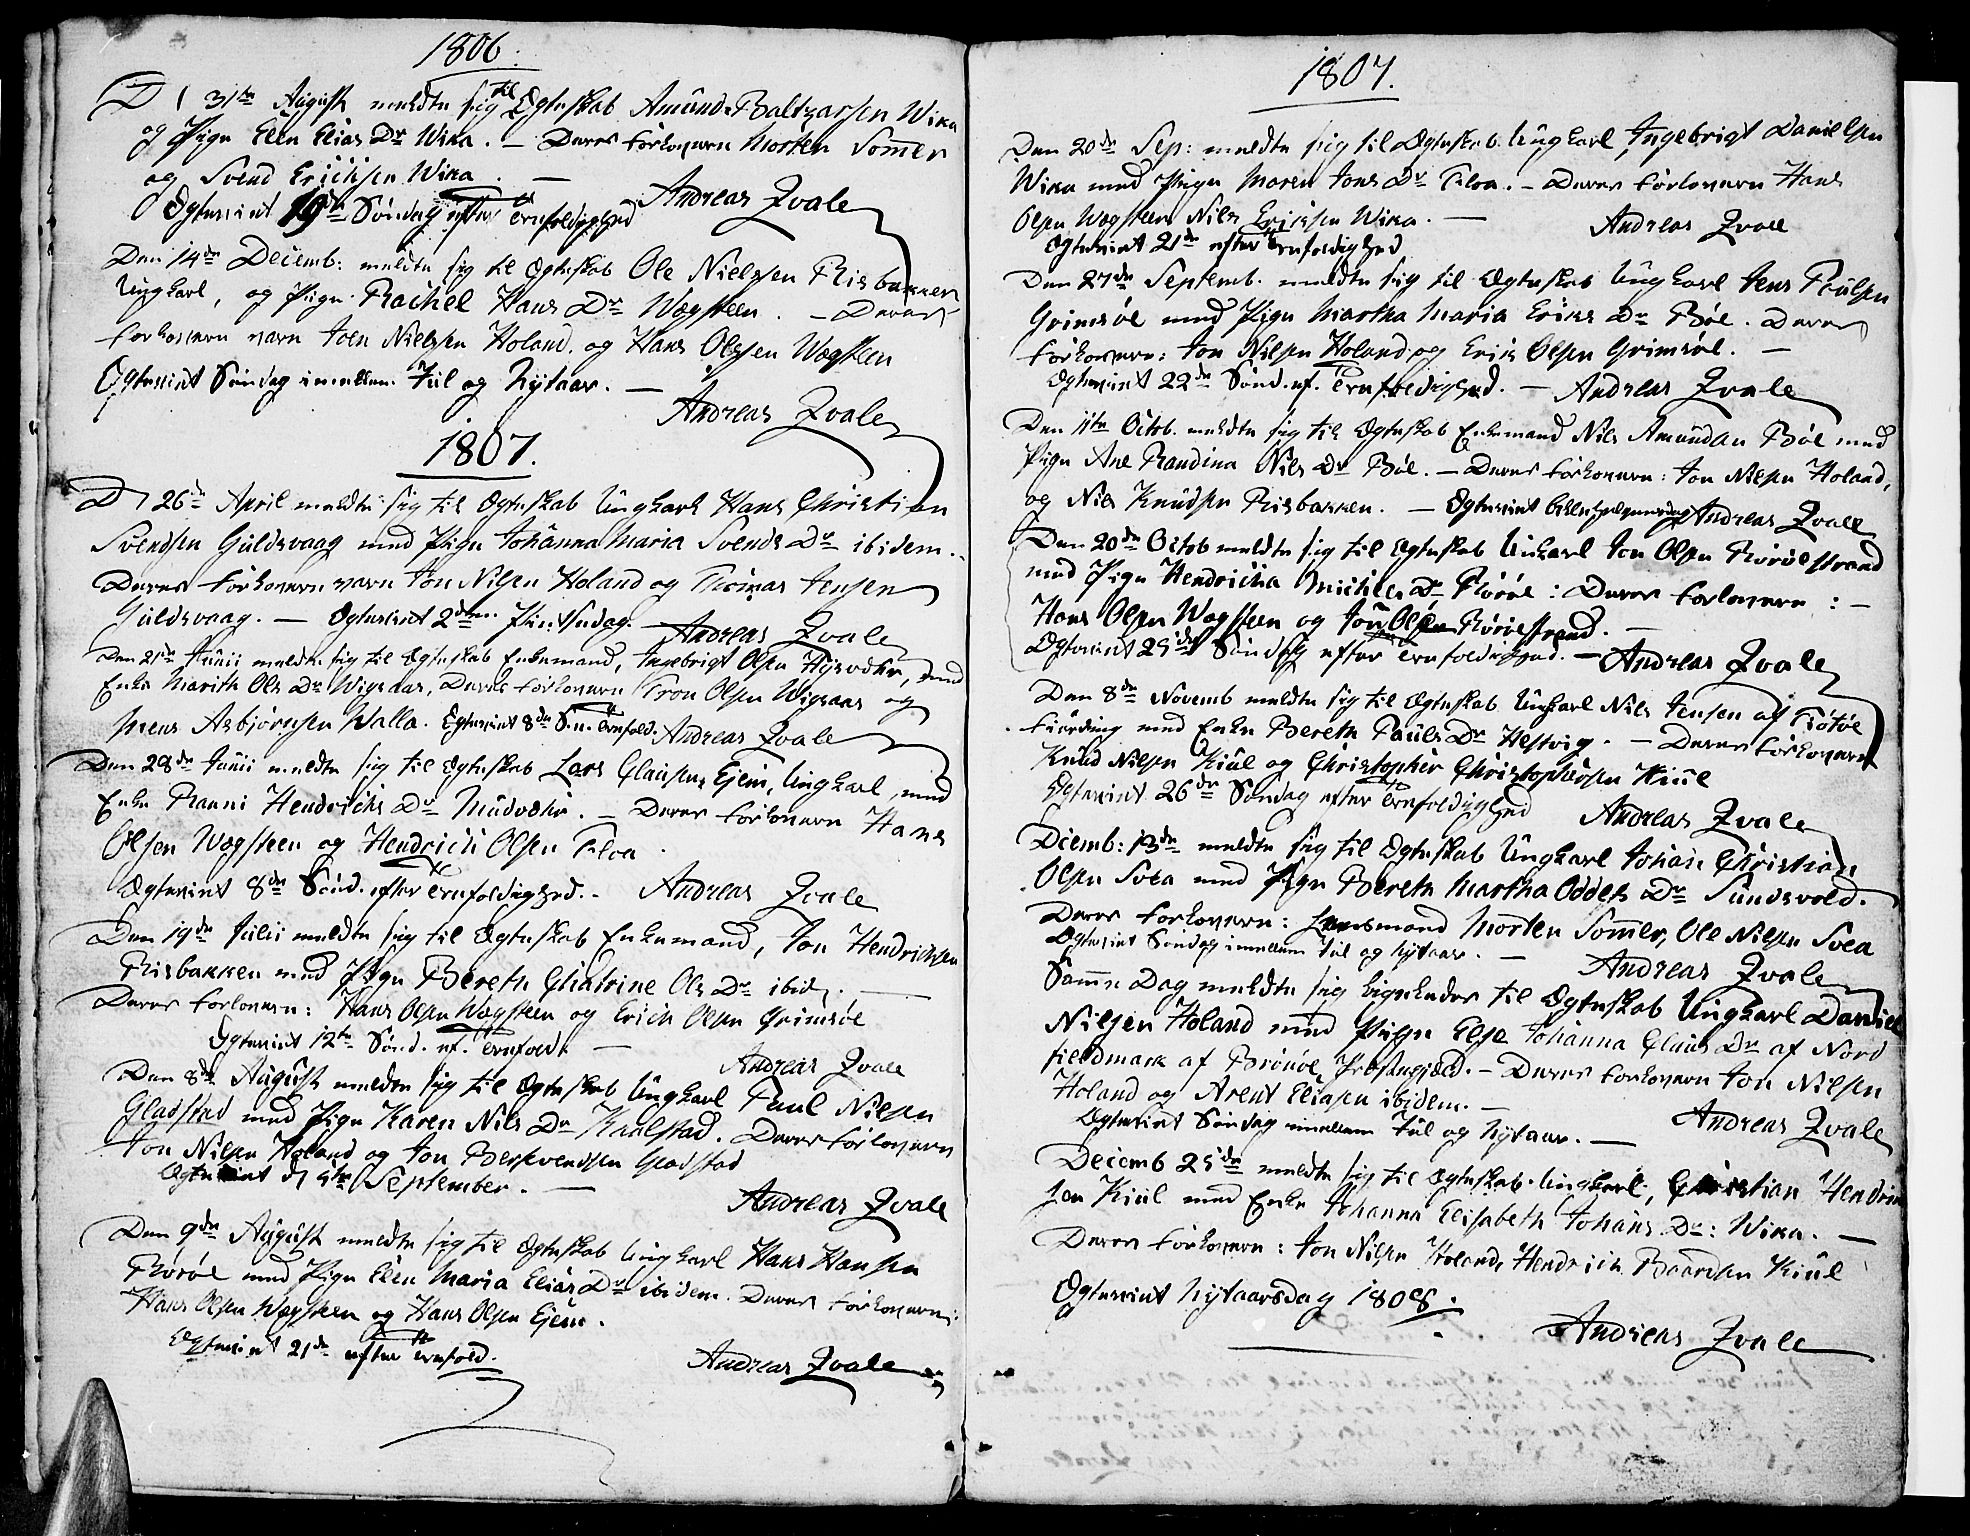 1806.
D 31te August meldte sig til Egteskab Amund Baltzarsen Wika
og Pige Elen Elias Dr Wika. – Deres Forlovere Morten Sommer
og Svend Erichsen Wika. –
Egteviet 19de Søndag efter Trefoldighed Andreas Zvale
Den 14de Decemb: meldte sig til Egteskab Ole Nielssen Risbakken
Ungkarl, og Pige Rachel Hans Dr Wægsteen. – Deres
Forlovere vare Joen Nielssen Holand og Hans Olssen Wægsteen
Egteviet Søndag imellem Jul og Nytaar. –
Andreas Zvale
1807.
D 26de April meldte sig til Egteskab Ungkarl Hans Christian
Svendsen Guldsvaag med Pige Johanna Maria Svends Dr ibidem.
Deres Forlovere vare Jon Nilsen Holand og Thomas Jensen
Guldsvaag. – Egteviet 2den Pintsedag. – Andreas Zvale
Den 21de Junii meldte sig til Egteskab Enkemand, Ingebrigt Olsen, med
Enke Marith Ols Dr Wigsaas, Deres Forlovere Tron Olsen Wigsaas og
Mens Asbjørnsen Walla. Egteviet 8de Sön. Trefold. Andreas Zvale
Den 28de Junii meldte sig til Egteskab Lars Clausen Ejem, Ungkarl, med
Enke Ranni Hendrichs Dr. – Deres Forlovere Hans
Olsen Wægsteen og Hendrich Olsen Floa.
Egteviet 8de Sönd. efter Trefoldighed. – Andreas Zvale
Den 19de Julii meldte sig til Egteskab Enkemand, Jon Hendrichsen
Risbakken med Pige Bereth Chatrine Ols Dr ibid. –
Deres Forlovere: Hans Olsen Wægsteen og Erich Olsen Grimsøe
Egteviet 12te Sönd. ef. Trefold. –
Andreas Zvale
Den 8de August meldte sig til Egteskab Ungkarl Paul Nilsen
Gladstad med Pige Karen Nils Dr Kaalstad. Deres Forlovere
Jon Nilsen Holand og Jon Gladstad
Egteviet d 4te September. –
Andreas Zvale
Den 9de August meldte sig til Egteskab Ungkarl Hans Hansen
Rørøe med Pige Elen Maria Elias Dr ibidem. Deres Forlovere:
Hans Olsen Wægsteen og Hans Olsen Ejem.
Egteviet 21de efter Trefold.
Andreas Zvale
1807.
Den 20de Sep: meldte sig til Egteskab Ungkarl Ingebrigt Danielsen
Wika med Pige Maren Jons Dr Floa. – Deres Forlovere Hans
Olsen Wægsteen Nils Eriksen Wika. – Andreas Zvale
Egteviet 21de efter Trefoldighed
Den 27de Septemb. meldte sig til Egteskab Ungkarl Jens Paulsen
Grimsøe med Pige Martha Maria Eriks Dr Bøe. Deres
Forlovere: Jon Nilsen Holand og Erik Olsen Grimsøe. –
Egteviet 22de Sönd. ef. Trefoldighed. – Andreas Zvale
Den 11te Octob. meldte sig til Egteskab Enkemand Nils Amundsen Bøe med
Pige Ane Randina Nils Dr Bøe. – Deres Forlovere: Jon Nilsen Holand,
og Nils Knudsen Risbakken. – Egteviet Allehelgensdag Andreas Zvale
Den 20de Octob meldte sig til Egteskab Unkarl Jon Olsen Rørøestrand
med Pige Hendricha Michels Dr Rørøe: Deres Forlovere: –
Hans Olsen Wægsteen og Jon Olsen Rørøestrand. –
Egteviet 25de Søndag efter Trefoldighed. – Andreas Zvale
Den 8de Novemb meldte sig til Egteskab Unkarl Nils Jensen af Tiøtøe
Fiærding med Enke Bereth Pauls Dr Hestvig. – Deres Forlovere
Knud Nilsen Kiul og Christopher Christophersen Kiul
Egteviet 26de Søndag efter Trefoldighed
Andreas Zvale
Decemb: 13de meldte sig til Egteskab Ungkarl Johan Christian
Olsen Svea med Pige Bereth Martha Oddes Dr Sundsvold.
Deres Forlovere: Lensmand Morten Sommer, Ole Nilsen Svea
Egteviet Søndag imellem Jul og Nytaar. –
Andreas Zvale
Samme Dag meldte sig ligeledes til Egteskab Ungkarl Daniel
Nilsen Holand med Pige Else Johanna Claus Dr af Nord
hieldmark af Brönöe Præstegield. – Deres Forlovere Jon Nilsen
Holand og Arent Eliasen ibidem. –
Egteviet Søndag imellem Jul og Nytaar. – Andreas Zvale
Decemb 25de meldte sig til Egteskab Ungkarl, Christian Hendrik
sen Kiul med Enke Johanna Elisabeth Johans Dr: Wika. –
Deres Forlovere: Jon Nilsen Holand, Hendrich Baardsen Kiul
Egteviet Nytaarsdag 1808.
Andreas Zvale